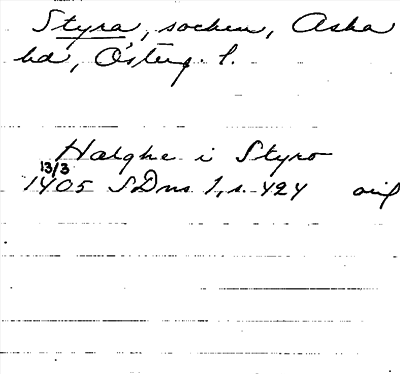 Styra, socken, Aska
hd, Österg. l.
Halghe i Styro
13/3
1405 SDns 1, s. 424 orig